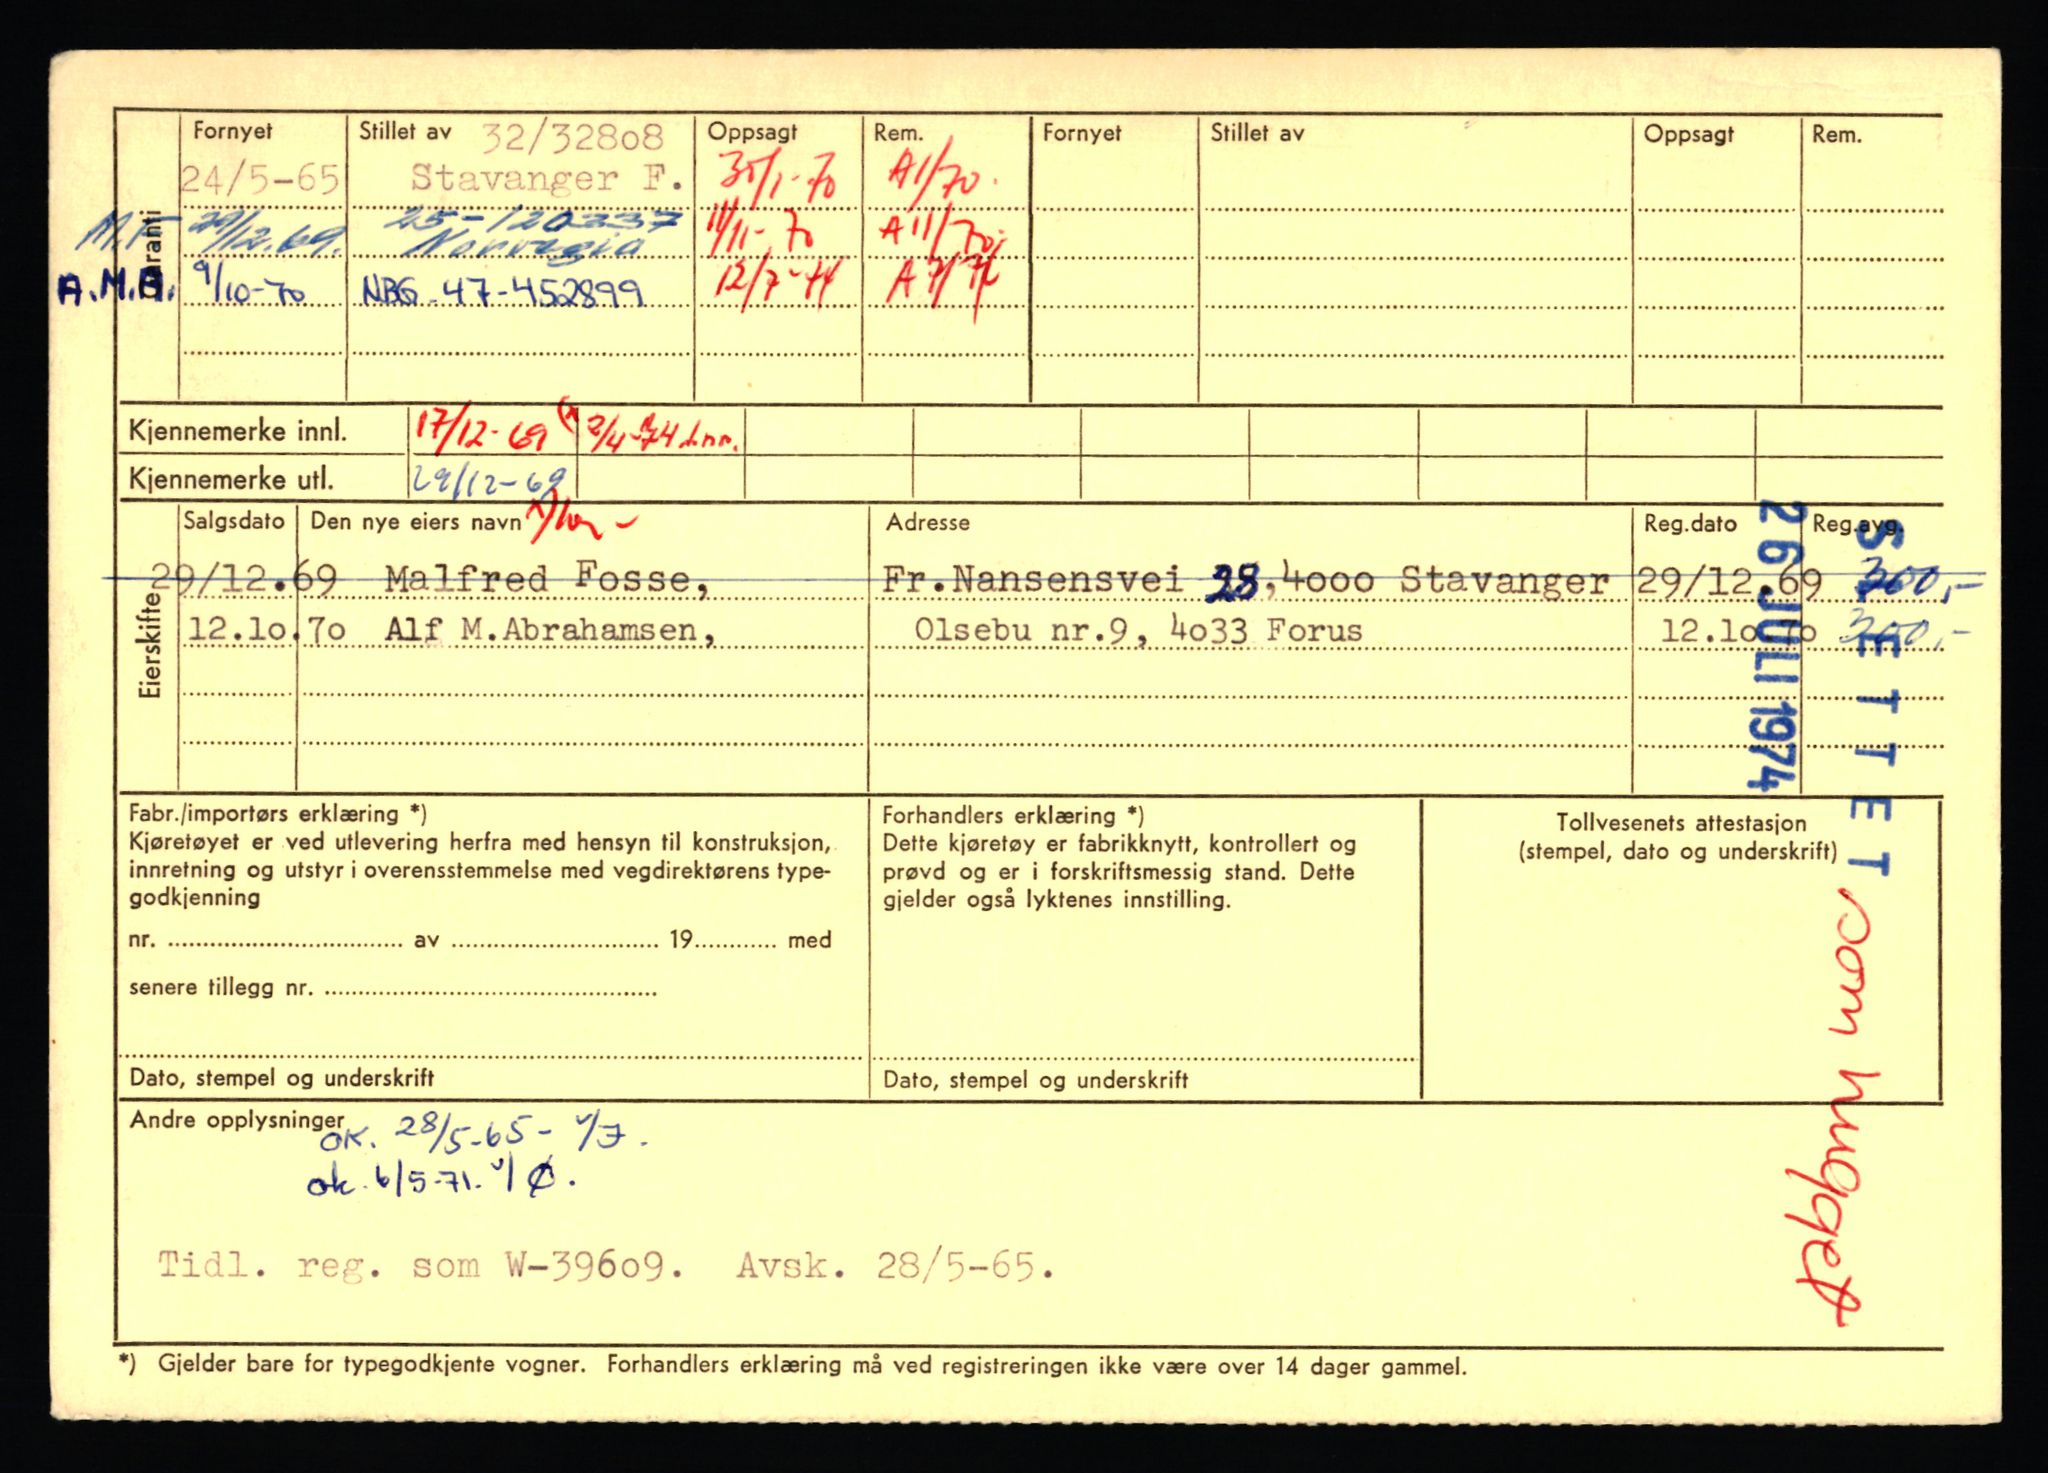 Fornyet Stillet av 32/32808 Oppsagt Rem. Fornyet Stillet av Oppsagt Rem.
24/5-65 Stavanger F. 30/1-70 A1/70.
M.F 29/12.69. 25-120337 11/11-70 A11/70
Norvegia
A.M.A. 9/10-70 NBG 47-452899 12/7-74 A7/74
Kjennemerke innl. 17/12-69 2/4-74
Kjennemerke utl. 29/12-69
Eierskifte
Salgsdato Den nye eiers navn Adresse Reg.dato Reg.avg.
29/12.69 Malfred Fosse, Fr.Nansensvei 28, 4000 Stavanger 29/12.69 300,-
12.10.70 Alf M.Abrahamsen, Olsebu nr.9, 4033 Forus 12.10.70 300,-
26 JULI 1974
SLETTET
som hugget
Fabr./importørs erklæring *)
Kjøretøyet er ved utlevering herfra med hensyn til konstruksjon,
innretning og utstyr i overensstemmelse med vegdirektørens type-
godkjenning
nr. av 19 med
senere tillegg nr.
Dato, stempel og underskrift
Forhandlers erklæring *)
Dette kjøretøy er fabrikknytt, kontrollert og
prøvd og er i forskriftsmessig stand. Dette
gjelder også lyktenes innstilling.
Dato, stempel og underskrift
Tollvesenets attestasjon
(stempel, dato og underskrift)
Andre opplysninger
OK. 28/5-65- v/J.
ok. 6/5-71. v/Ø.
Tidl. reg. som W-39609. Avsk. 28/5-65.
*) Gjelder bare for typegodkjente vogner. Forhandlers erklæring må ved registreringen ikke være over 14 dager gammel.